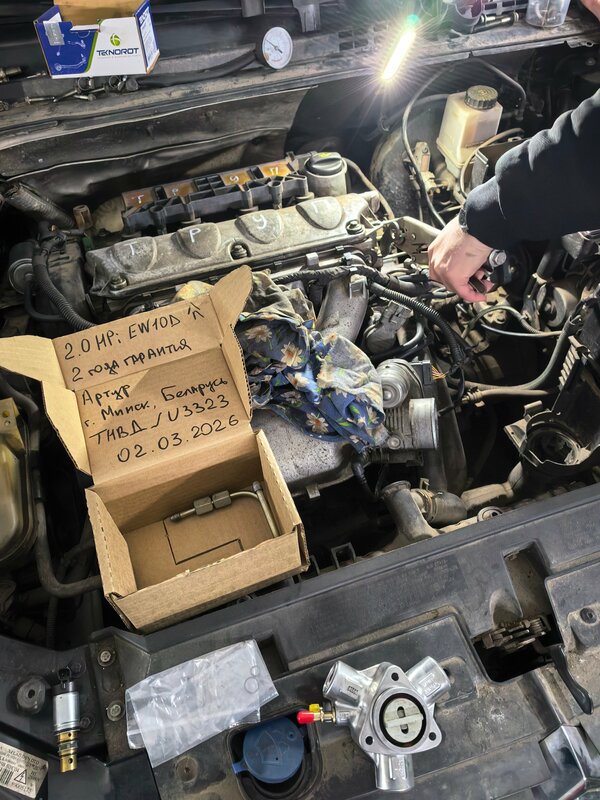 TEKNOROT
2.0 HPi EW10D "Л"
2 года гарантия
Артур
г. Минск, Беларусь
ТНВД /U3323
02.03.2026